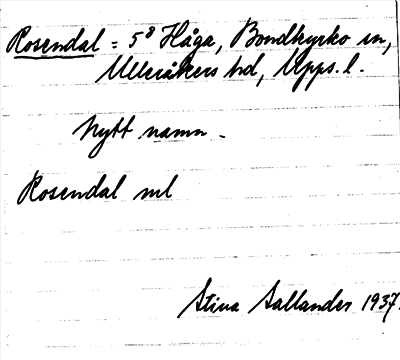 Rosendal = 5⁸ Håga, Bondkyrko sn,
Ulleråkers hd, Upps. l.
Nytt namn.
Rosendal ml
Stina Sallander 1937.